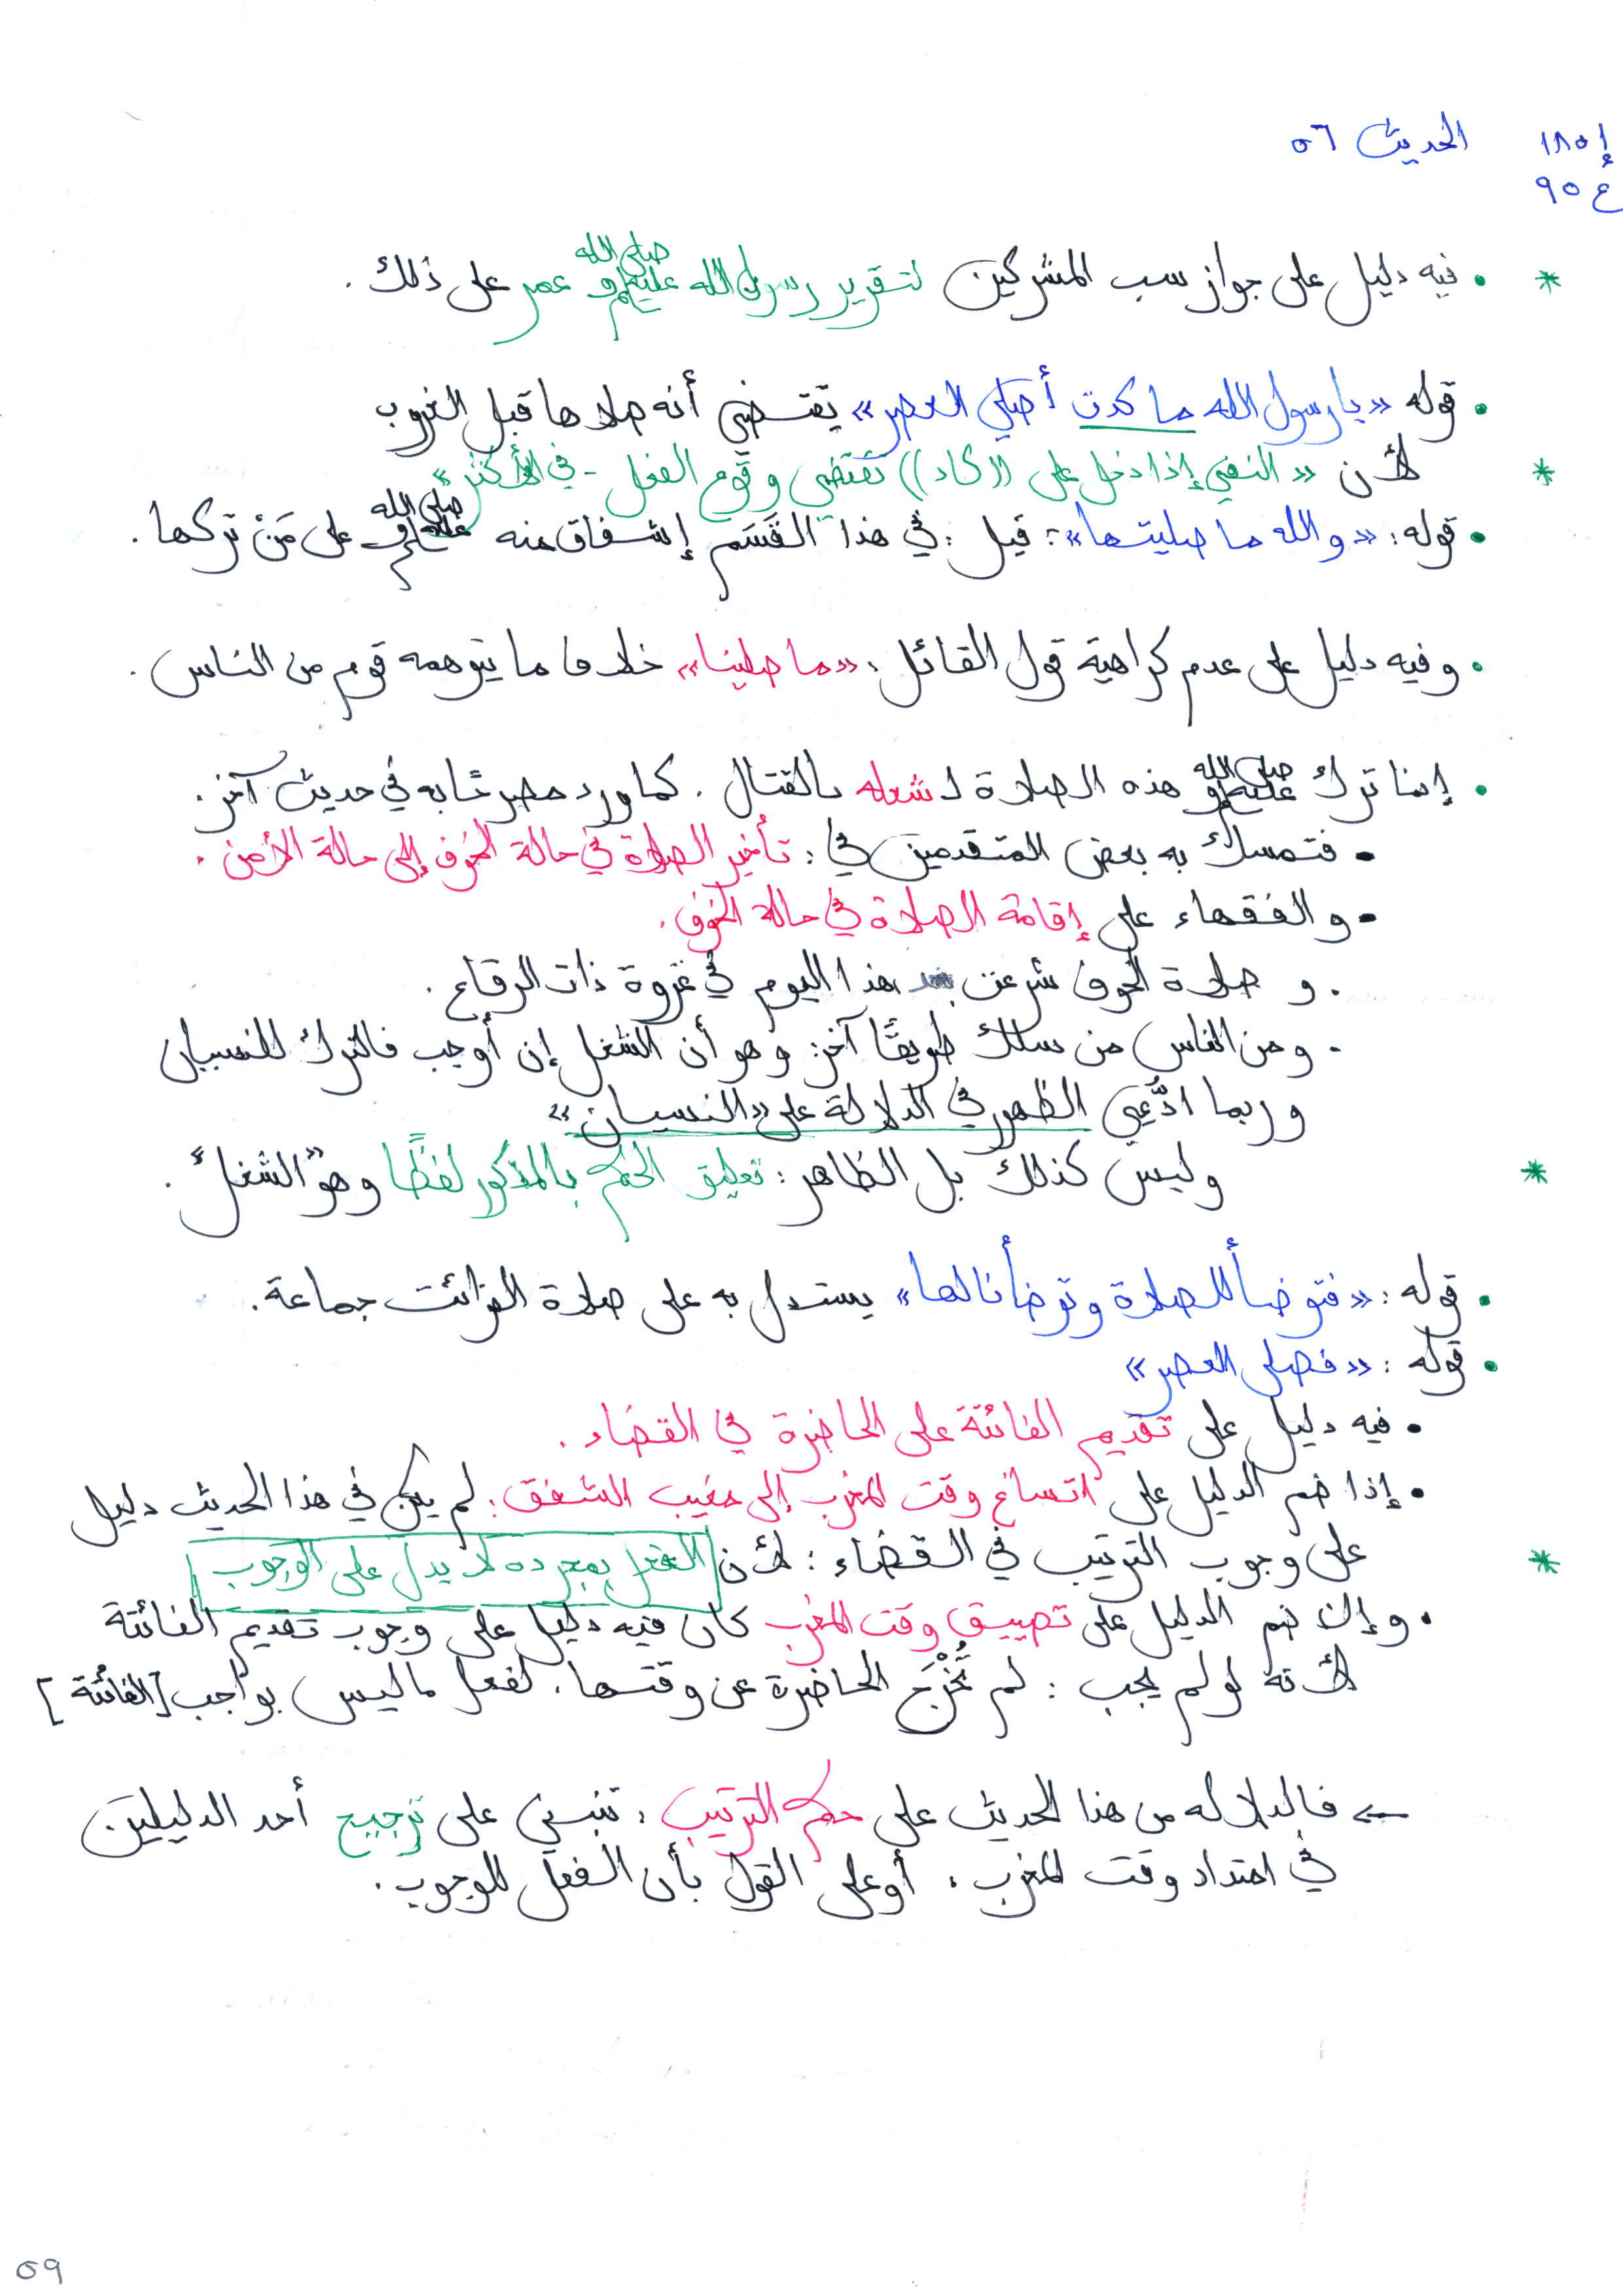 إ ١٨٥ الحديث ٥٦
ع ٩٥
* • فيه دليل على جواز سب المشركين لتقرير رسول الله صلى الله عليه وسلم عمر على ذلك .
• قوله «يا رسول الله ما كدت أصلي العصر» يقتضي أنه صلاها قبل الغروب
* لأن «النفي إذا دخل على ((كاد)) تقتضي وقوع الفعل - في الأكثر»
• قوله: «والله ما صليتها»: قيل: في هذا القَسَم إشفاق منه صلى الله عليه وسلم على مَنْ تركها .
• وفيه دليل على عدم كراهية قول القائل: «ما صلينا» خلافا ما يتوهمه قوم من الناس .
• إنما ترك صلى الله عليه وسلم هذه الصلاة لشغله بالقتال . كما ورد مصرحًا به في حديث آخر .
- فتمسك به بعض المتقدمين في : تأخير الصلاة في حالة الخوف إلى حالة الأمن .
- والفقهاء على إقامة الصلاة في حالة الخوف .
. و صلاة الخوف شرعت بعد هذا اليوم في غزوة ذات الرقاع .
. ومن الناس من سلك طريقًا آخر : وهو أن الشغل إن أوجب فالترك للنسيان
وربما ادُّعِيَ الظهور في الدلالة على «النسيان»
* وليس كذلك بل الظاهر : تعليق الحكم بالمذكور لفظًا وهو "الشغل" .
• قوله : «فتوضأ للصلاة وتوضأنا لها» يستدل به على صلاة الفوائت جماعة .
• قوله : «فصلى العصر»
• فيه دليل على تقديم الفائتة على الحاضرة في القضاء .
• إذا ضم الدليل على اتساع وقت المغرب إلى مغيب الشفق : لم يكن في هذا الحديث دليل
* على وجوب الترتيب في القضاء : لأن الفعل بمجرده لا يدل على الوجوب
• وإن ضم الدليل على تضييق وقت المغرب كان فيه دليل على وجوب تقديم الفائتة
لأنه لو لم يجب : لم تُخْرَج الحاضرة عن وقتها . لفعل ما ليس بواجب [الفائتة]
← فالدلالة من هذا الحديث على حكم الترتيب : تنبني على ترجيح أحد الدليلين
في امتداد وقت المغرب . أو على القول بأن الفعل للوجوب .
٥٩